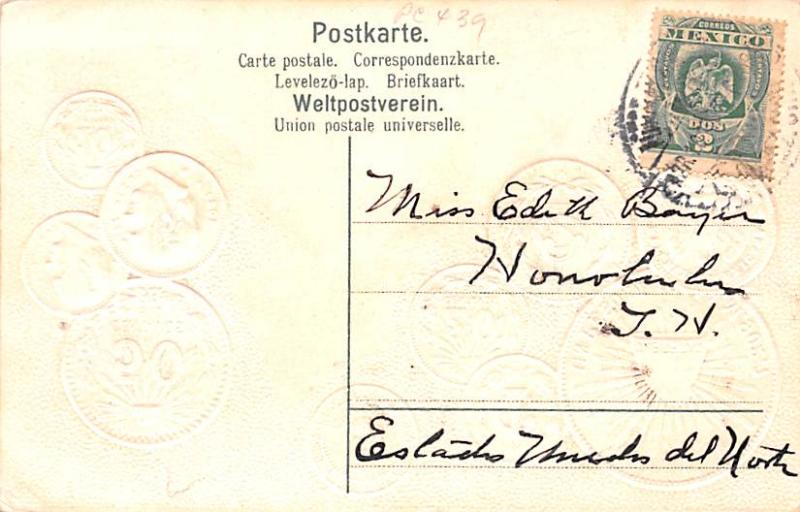 PC 439
Postkarte.
Carte postale. Correspondenzkarte.
Levelező-lap. Briefkaart.
Weltpostverein.
Union postale universelle.
CORREOS
MEXICO
DOS
2
Miss Edith Bayer
Honolulu
T. H.
Estados Unidos del Norte